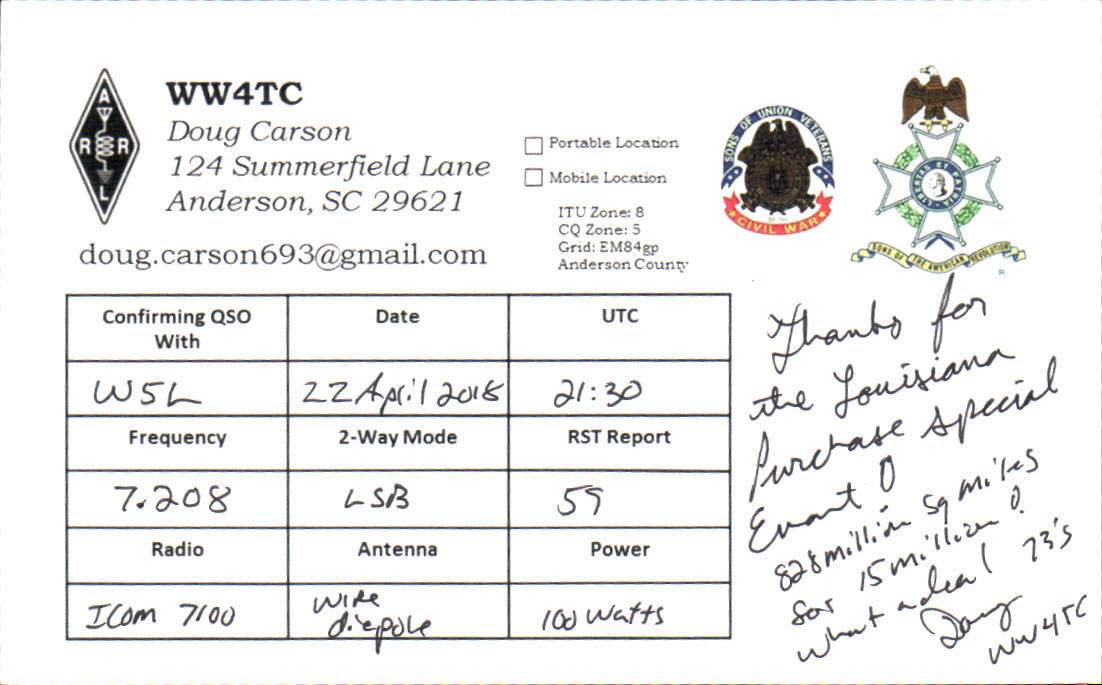 A
R R
L
WW4TC
Doug Carson
124 Summerfield Lane
Anderson, SC 29621
doug.carson693@gmail.com
Portable Location
Mobile Location
ITU Zone: 8
CQ Zone: 5
Grid: EM84gp
Anderson County
SONS OF UNION VETERANS
OF THE
CIVIL WAR
LIBERTAS ET PATRIA
SONS OF THE AMERICAN REVOLUTION
R
Confirming QSO With
Date
UTC
W5L
22 April 2018
21:30
Frequency
2-Way Mode
RST Report
7.208
LSB
59
Radio
Antenna
Power
Icom 7100
wire
diepole
100 watts
Thanks for
the Louisiana
Purchase special
Event !
828 million sq miles
for 15 million !
what a deal ! 73's
Doug
WW4TC